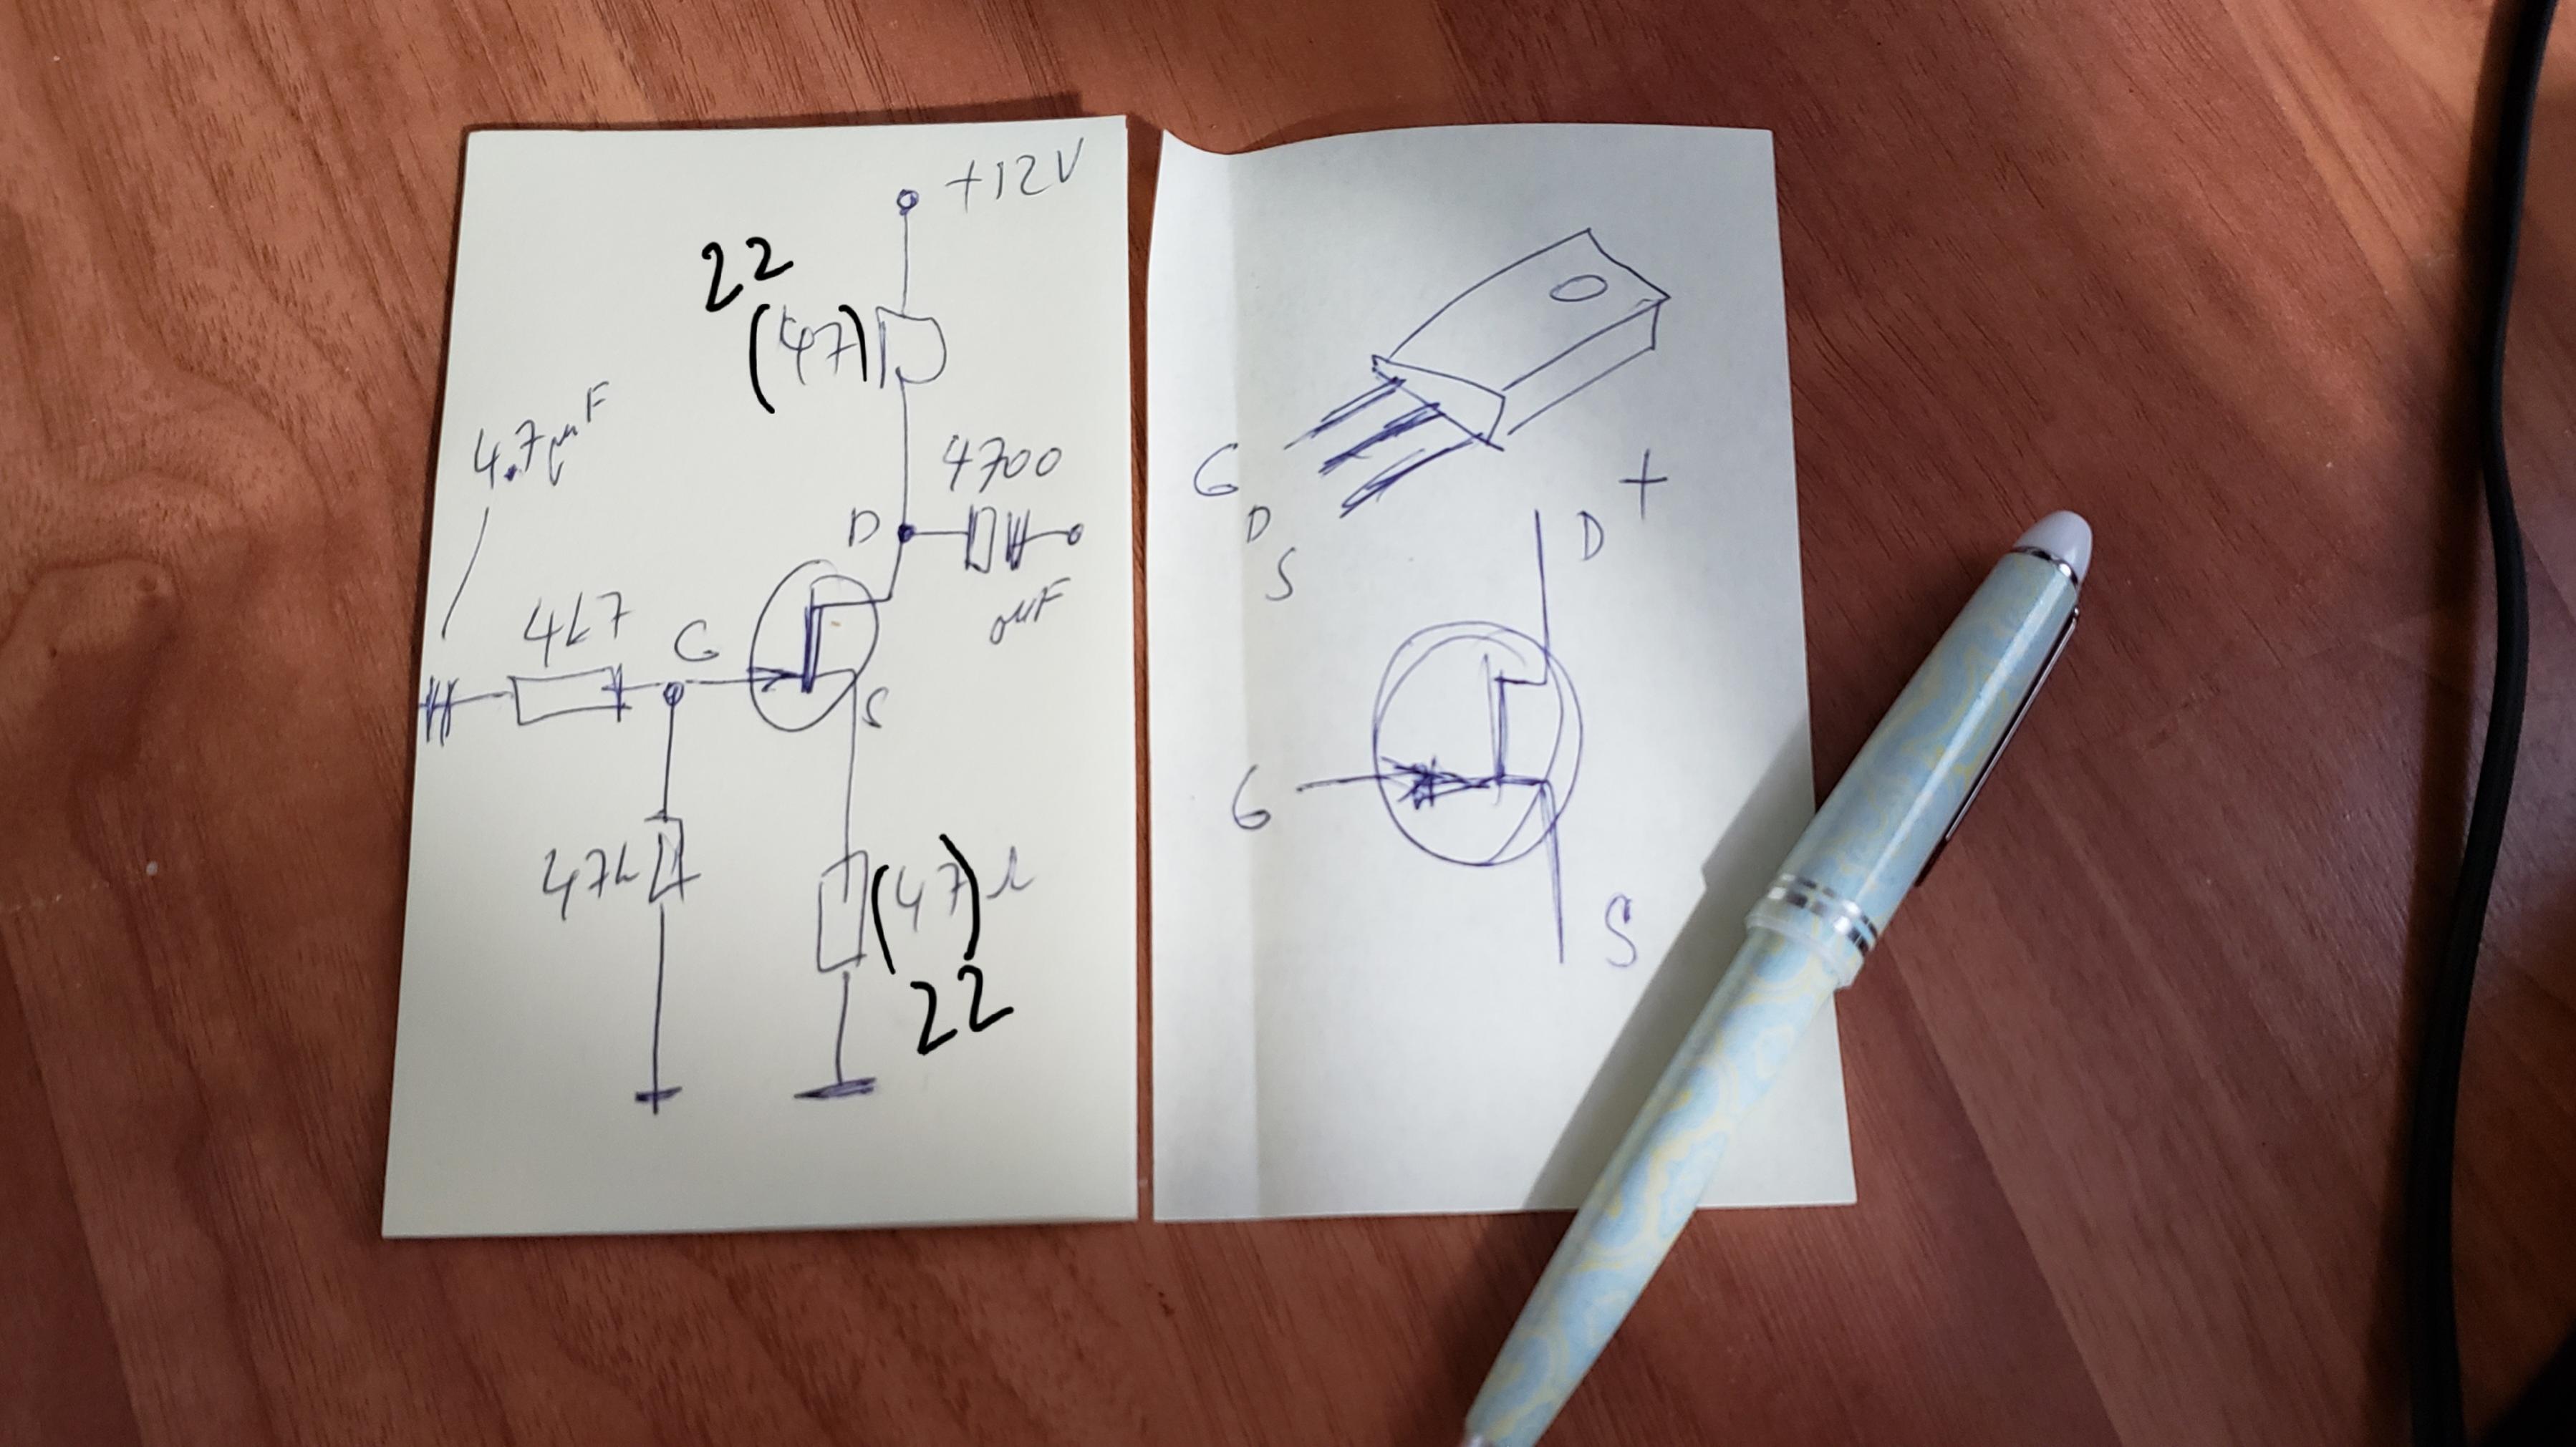 +12V
22
(47)
4.7µF
4700
D
µF
4k7
G
S
47k
(47)Ω
22
G
D
S
+
D
G
S